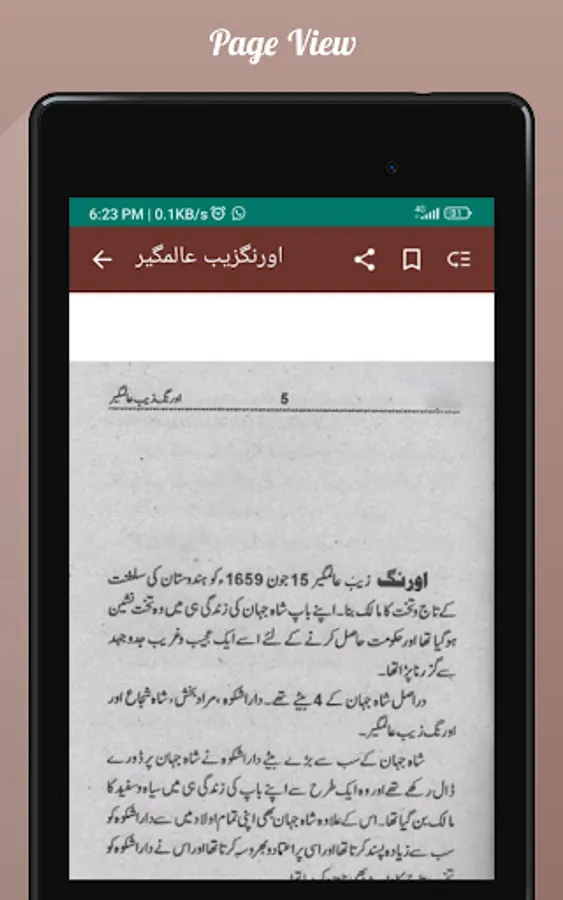 Page View
6:23 PM | 0.1KB/s
4G
31
اورنگزیب عالمگیر
5 اورنگ زیب عالمگیر
اورنگ زیب عالمگیر 15 جون 1659ء کو ہندوستان کی سلطنت
کے تاج و تخت کا مالک بنا۔ اپنے باپ شاہ جہان کی زندگی ہی میں وہ تخت نشین
ہو گیا تھا اور حکومت حاصل کرنے کے لئے اسے ایک عجیب و غریب جدوجہد
سے گزرنا پڑا تھا۔
دراصل شاہ جہان کے 4 بیٹے تھے۔ داراشکوہ، مراد بخش، شاہ شجاع اور
اورنگ زیب عالمگیر۔
شاہ جہان کے سب سے بڑے بیٹے داراشکوہ نے شاہ جہان پر ڈورے
ڈال رکھے تھے اور وہ ایک طرح سے اپنے باپ کی زندگی ہی میں سیاہ و سفید کا
مالک بن گیا تھا۔ اس کے علاوہ شاہ جہان بھی اپنی تمام اولاد میں سے داراشکوہ کو
سب سے زیادہ پسند کرتا تھا اور اسی پر اعتماد و بھروسہ کرتا تھا اور اس نے داراشکوہ کو